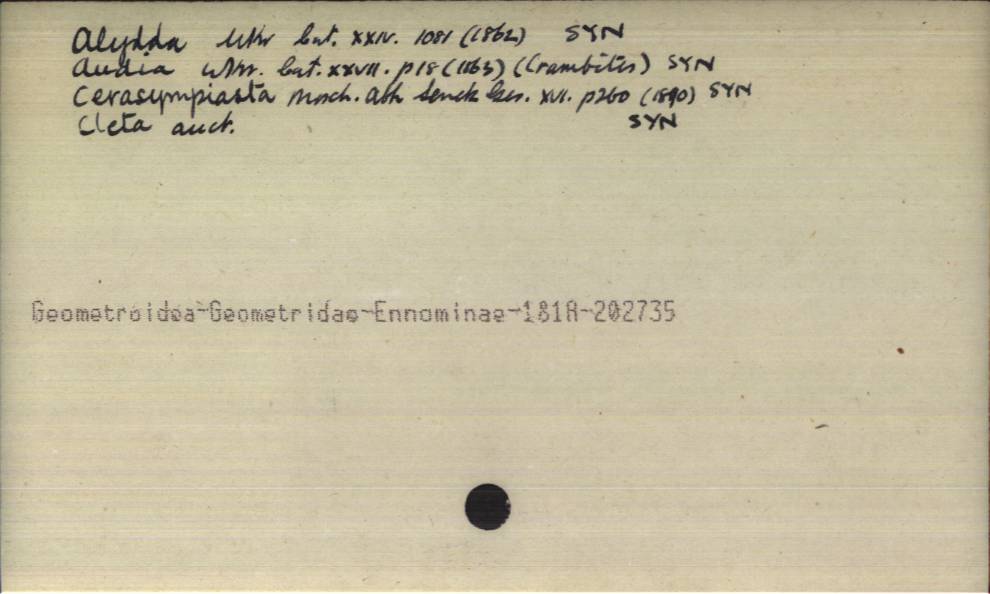 Alydda Wkr Cat. XXIV. 1081 (1862) SYN
Audia Wkr. Cat. XXVII. p18 (1863) (Crambites) SYN
Cerasympiasta Mosch. Abh Senck Ges. XVI. p260 (1890) SYN
Cleta auct. SYN
Geometroidea-Geometridae-Ennominae-181A-202735